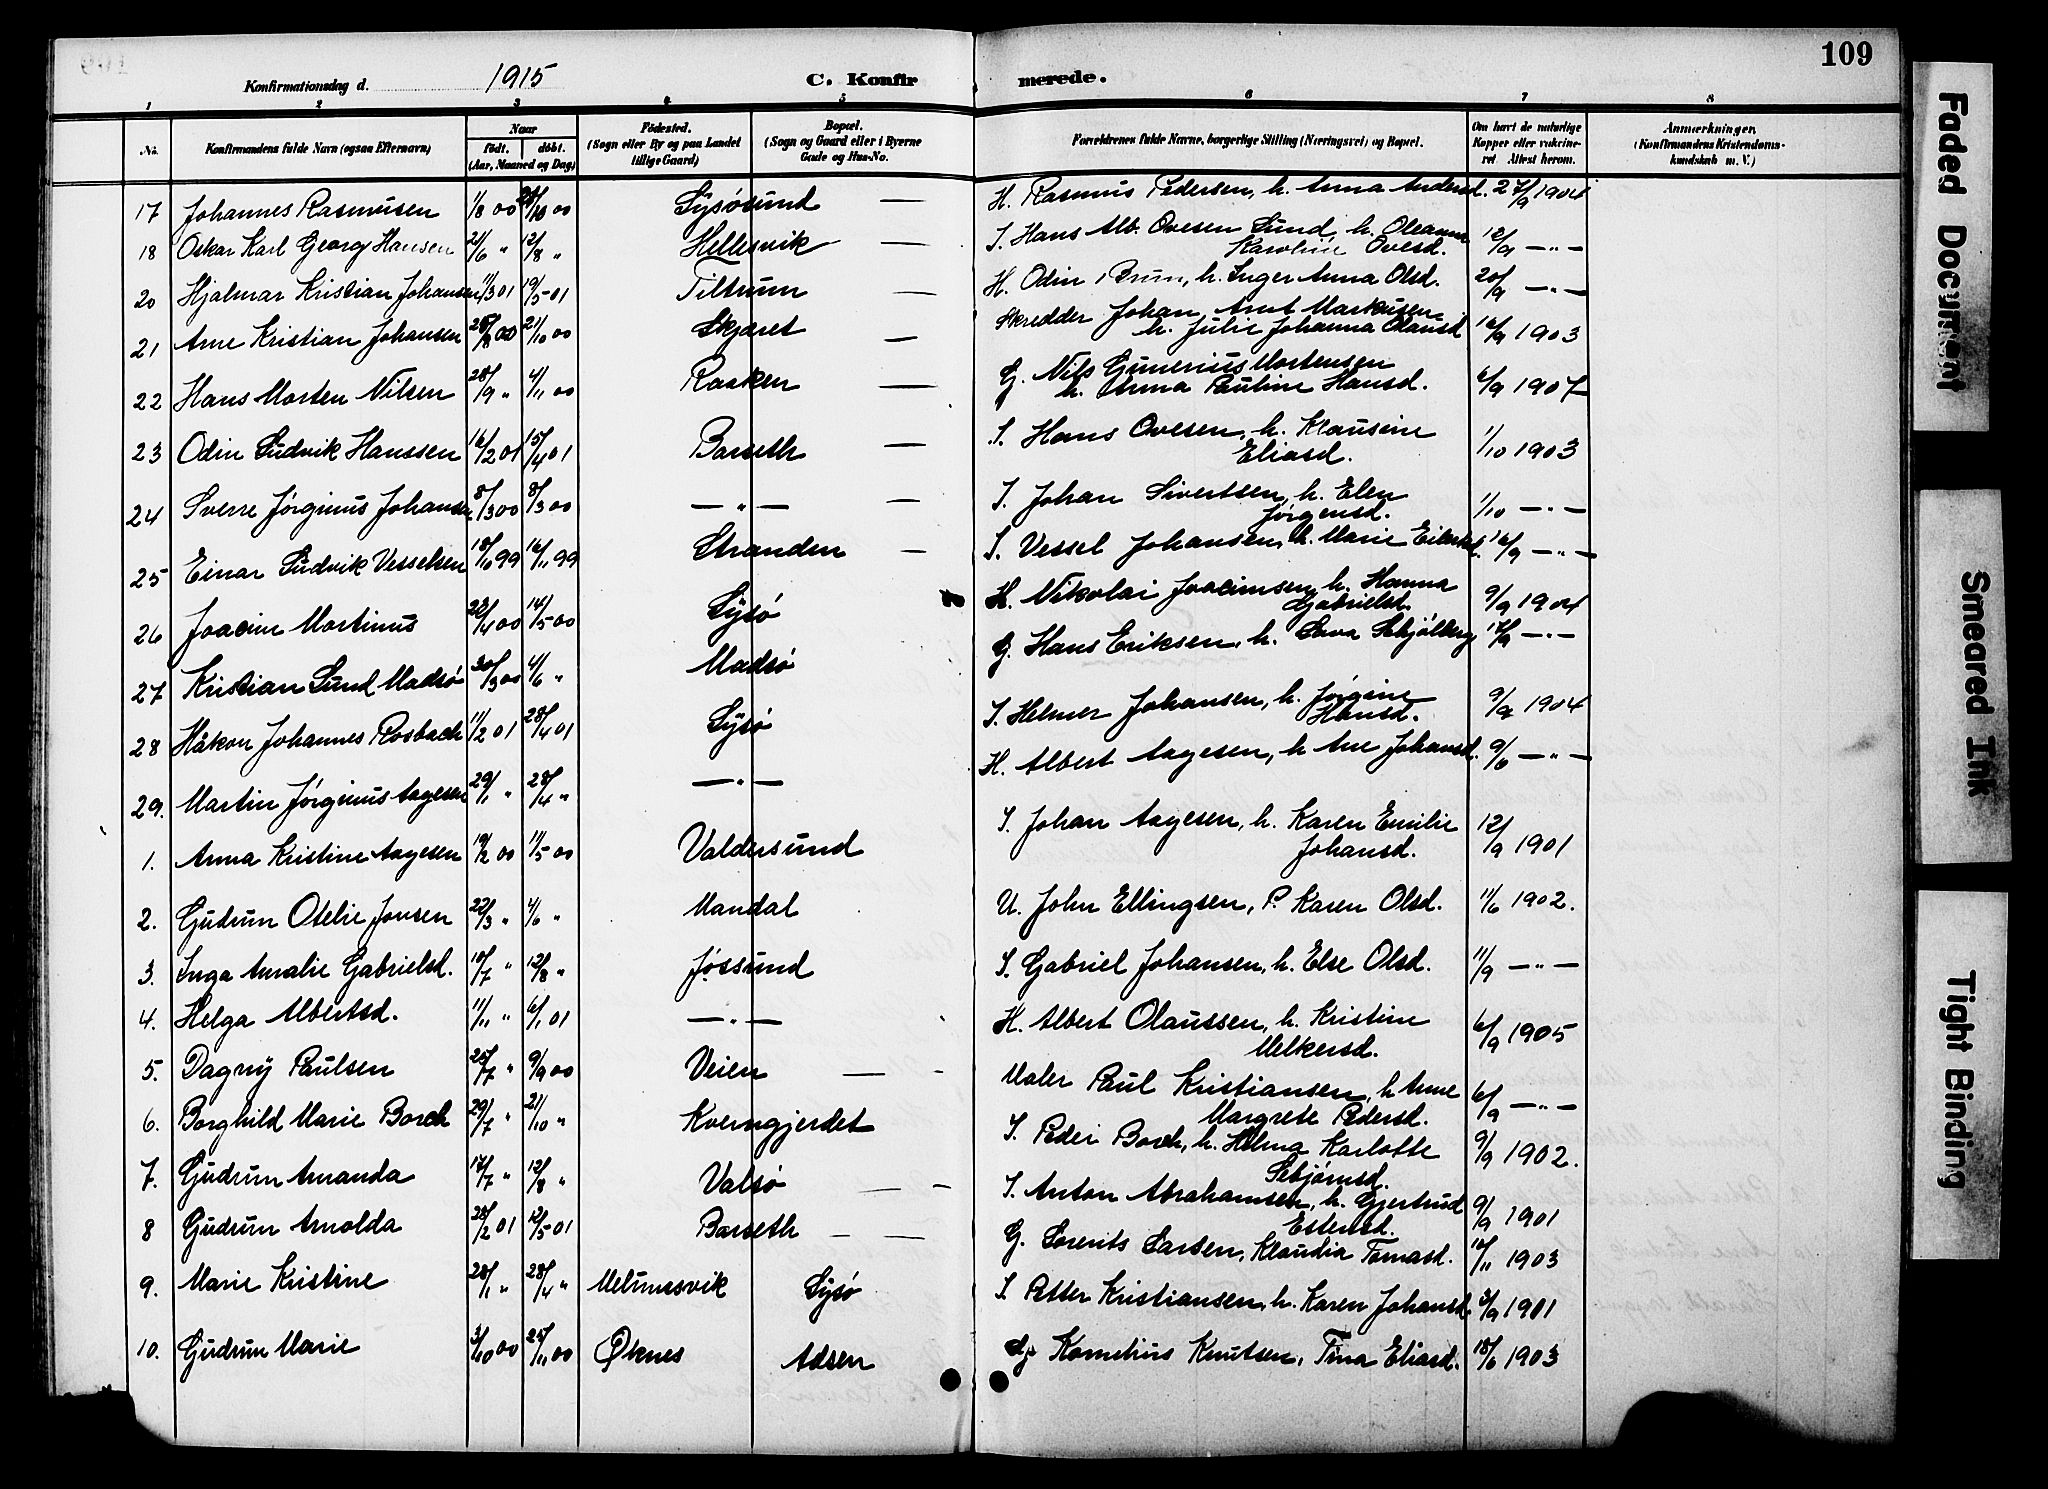 109
Konfirmationsdag d. 1915 C. Konfir merede.
1 2 3 4 5 6 7 8
No. Konfirmandens fulde Navn (ogsaa Efternavn) Naar født. døbt. (Aar, Maaned og Dag) Fødested. (Sogn eller By og paa Landet tillige Gaard) Bopæl. (Sogn og Gaard eller i Byerne Gade og Hus-No. Forældrenes fulde Navne, borgerlige Stilling (Næringsvei) og Bopæl. Om havt de naturlige Kopper eller vakcineret. Attest herom. Anmærkninger. (Konfirmandens Kristendomskundskab m. V.)
17 Johannes Rasmusen 1/8 00 /10 00 Lysøsund — H. Rasmus Pedersen, h. Anna Andersd. 27/9 1904
18 Oskar Karl Georg Hansen 21/6 " 12/8 " Hellesvik — S. Hans Alb. Ovesen Sund, h. Oleanna Karoline Ovesd. 12/9 — " —
20 Hjalmar Kristian Johansen 11/3 01 19/5 01 Tiltrum — H. Odin Brun, h. Inger Anna Olsd. 20/9 — " —
21 Arne Kristian Johansen 28/8 00 21/10 00 Skjæret — Skredder Johan Arnt Markusen h. Julie Johanna Olausd 16/9 1903
22 Hans Morten Nilsen 28/9 " 4/11 00 Raaken — G. Nils Gunerius Mortensen h. Anna Pauline Hansd. 6/9 1907
23 Odin Ludvik Hanssen 16/2 01 15/4 01 Barseth — S. Hans Ovesen, h. Klausine Eliasd. 1/10 1903
24 Sverre Jørginus Johansen 8/3 00 8/3 00 — " — — S. Johan Sivertsen, h. Elen Jørgensd. 1/10 — " —
25 Einar Ludvik Vesselsen 18/10 99 16/11 99 Stranden — S. Vessel Johansen, h. Marie 16/9 — " —
26 Joacim Martinus 23/4 00 14/5 00 Lysø H. Nikolai Joacimsen, h. Hanna Gabrielsd. 9/9 1904
27 Kristian Sund Madsø 30/3 00 4/6 " Madsø G. Hans Eriksen, h. 12/9 — " —
28 Håkon Johannes Rosbach 11/2 01 28/4 01 Lysø S. Helmer Johansen, h. Jørgine Hansd. 9/9 1904
29. Martin Jørginus Aagesen 29/1 " 28/4 " — " — H. Albert Aagesen, h Ane Johansd. 9/6 — " —
1. Anna Kristine Aagesen 19/2 00 11/5 00 Valdersund S. Johan Aagesen, h. Karen Emilie Johansd. 12/9 1901
2. Gudrun Otelie Jonsen 22/3 " 4/6 " Mandal U. John Ellingsen, P. Karen Olsd. 11/6 1902.
3. Inga Amalie Gabrielsd. 10/7 " 12/8 " Jøssund S. Gabriel Johansen, h. Else Olsd. 11/9 — " —
4. Helga Albertsd. 11/11 " 6/1 01 — " — H. Albert Olaussen, h. Kristine Melkersd. 6/9 1905
5. Dagny Paulsen 25/7 " 9/9 00 Veien — - Maler Paul Kristiansen, h Anne Margrete Pedersd. 6/9 — " —
6. Borghild Marie Borch 29/7 " 21/10 " Kverngjerdet S. Peder Borch, h. Helma Karlotte Sebjørnsd. 9/9 1902.
7. Gudrun Amanda 17/7 " 12/8 " Valsø — - S. Anton Abrahamsen, h. Gjertrud Estensd. 9/9 1901
8 Gudrun Arnolda 28/2 01 12/5 01 Barseth - — G. Lorents Larsen, Klaudia Tomasd. 10/11 1903
9. Marie Kristine 28/1 " 28/4 " Melumsvik Lysø S. Petter Kristiansen, h. Karen Johansd. 3/9 1901
10. Gudrun Marie 3/10 00 25/11 00 Øknes Adsen Kornelius Knutsen, Tina Eliasd. 18/6 1903
Faded Document
Smeared Ink
Tight Binding